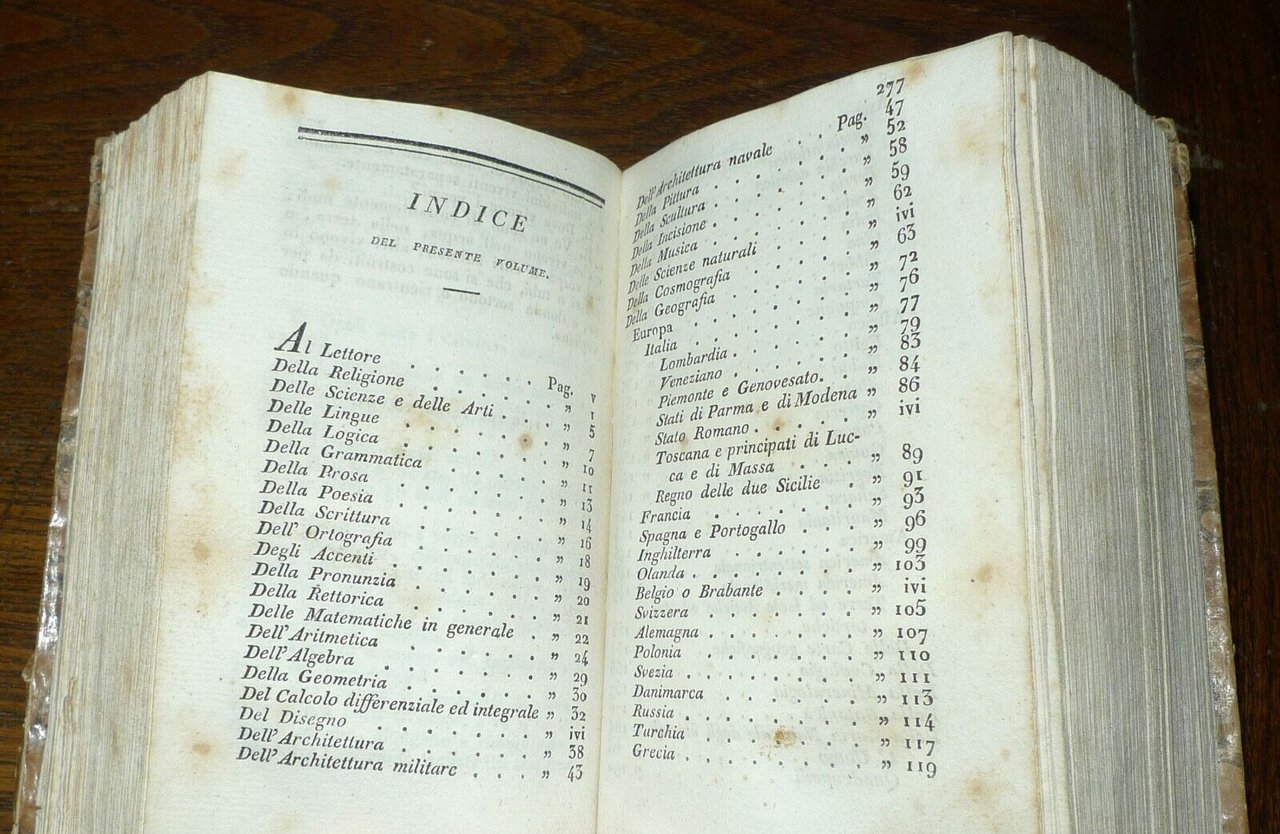 INDICE
DEL PRESENTE VOLUME.
Al Lettore . . . . . . Pag. v
Della Religione . . . . . . „ 1
Delle Scienze e delle Arti . . . „ 5
Delle Lingue . . . . . . . „ 7
Della Logica . . . . . . . „ 10
Della Grammatica . . . . . „ 11
Della Prosa . . . . . . . „ 13
Della Poesia . . . . . . . „ 14
Della Scrittura . . . . . . „ 16
Dell' Ortografia . . . . . . „ 18
Degli Accenti . . . . . . . „ 19
Della Pronunzia . . . . . . „ 20
Della Rettorica . . . . . . „ 21
Delle Matematiche in generale . „ 22
Dell'Aritmetica . . . . . . „ 24
Dell'Algebra . . . . . . . „ 29
Della Geometria . . . . . . „ 30
Del Calcolo differenziale ed integrale „ 32
Del Disegno . . . . . . . „ ivi
Dell'Architettura . . . . . . „ 38
Dell'Architettura militare . . . „ 43
277
Dell'Architettura navale . . Pag. 47
Della Pittura . . . . . . . „ 52
Della Scultura . . . . . . „ 58
Della Incisione . . . . . . „ 59
Della Musica . . . . . . . „ 62
Delle Scienze naturali . . . . „ ivi
Della Cosmografia . . . . . „ 63
Della Geografia . . . . . . „ 72
Europa . . . . . . . . „ 76
Italia . . . . . . . . „ 77
Lombardia . . . . . . . „ 79
Veneziano . . . . . . . „ 83
Piemonte e Genovesato . . . „ 84
Stati di Parma e di Modena „ 86
Stato Romano . . . . . . „ ivi
Toscana e principati di Luc-
ca e di Massa . . . . „ 89
Regno delle due Sicilie . . „ 91
Francia . . . . . . . . „ 93
Spagna e Portogallo . . . . „ 96
Inghilterra . . . . . . . „ 99
Olanda . . . . . . . . „ 103
Belgio o Brabante . . . . . „ ivi
Svizzera . . . . . . . . „ 105
Alemagna . . . . . . . . „ 107
Polonia . . . . . . . . „ 110
Svezia . . . . . . . . „ 111
Danimarca . . . . . . . „ 113
Russia . . . . . . . . „ 114
Turchia . . . . . . . . „ 117
Grecia . . . . . . . . „ 119